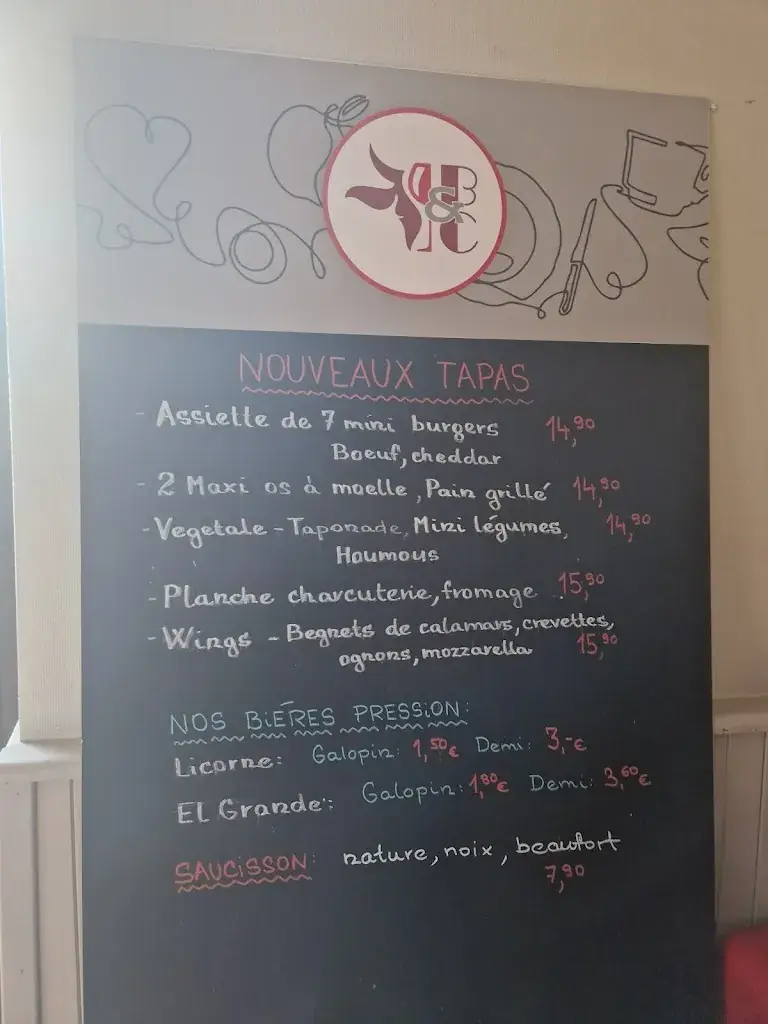 B
&
C
NOUVEAUX TAPAS
- Assiette de 7 mini burgers 14,90
Boeuf, cheddar
- 2 Maxi os à moelle, Pain grillé 14,90
- Vegetale - Taponade, Mini légumes, 14,90
Houmous
- Planche charcuterie, fromage 15,90
- Wings - Begnets de calamars, crevettes,
ognons, mozzarella 15,90
NOS BIÉRES PRESSION:
Licorne: Galopin: 1,50€ Demi: 3,-€
EL Grande: Galopin: 1,80€ Demi: 3,60€
SAUCISSON: nature, noix, beaufort
7,90